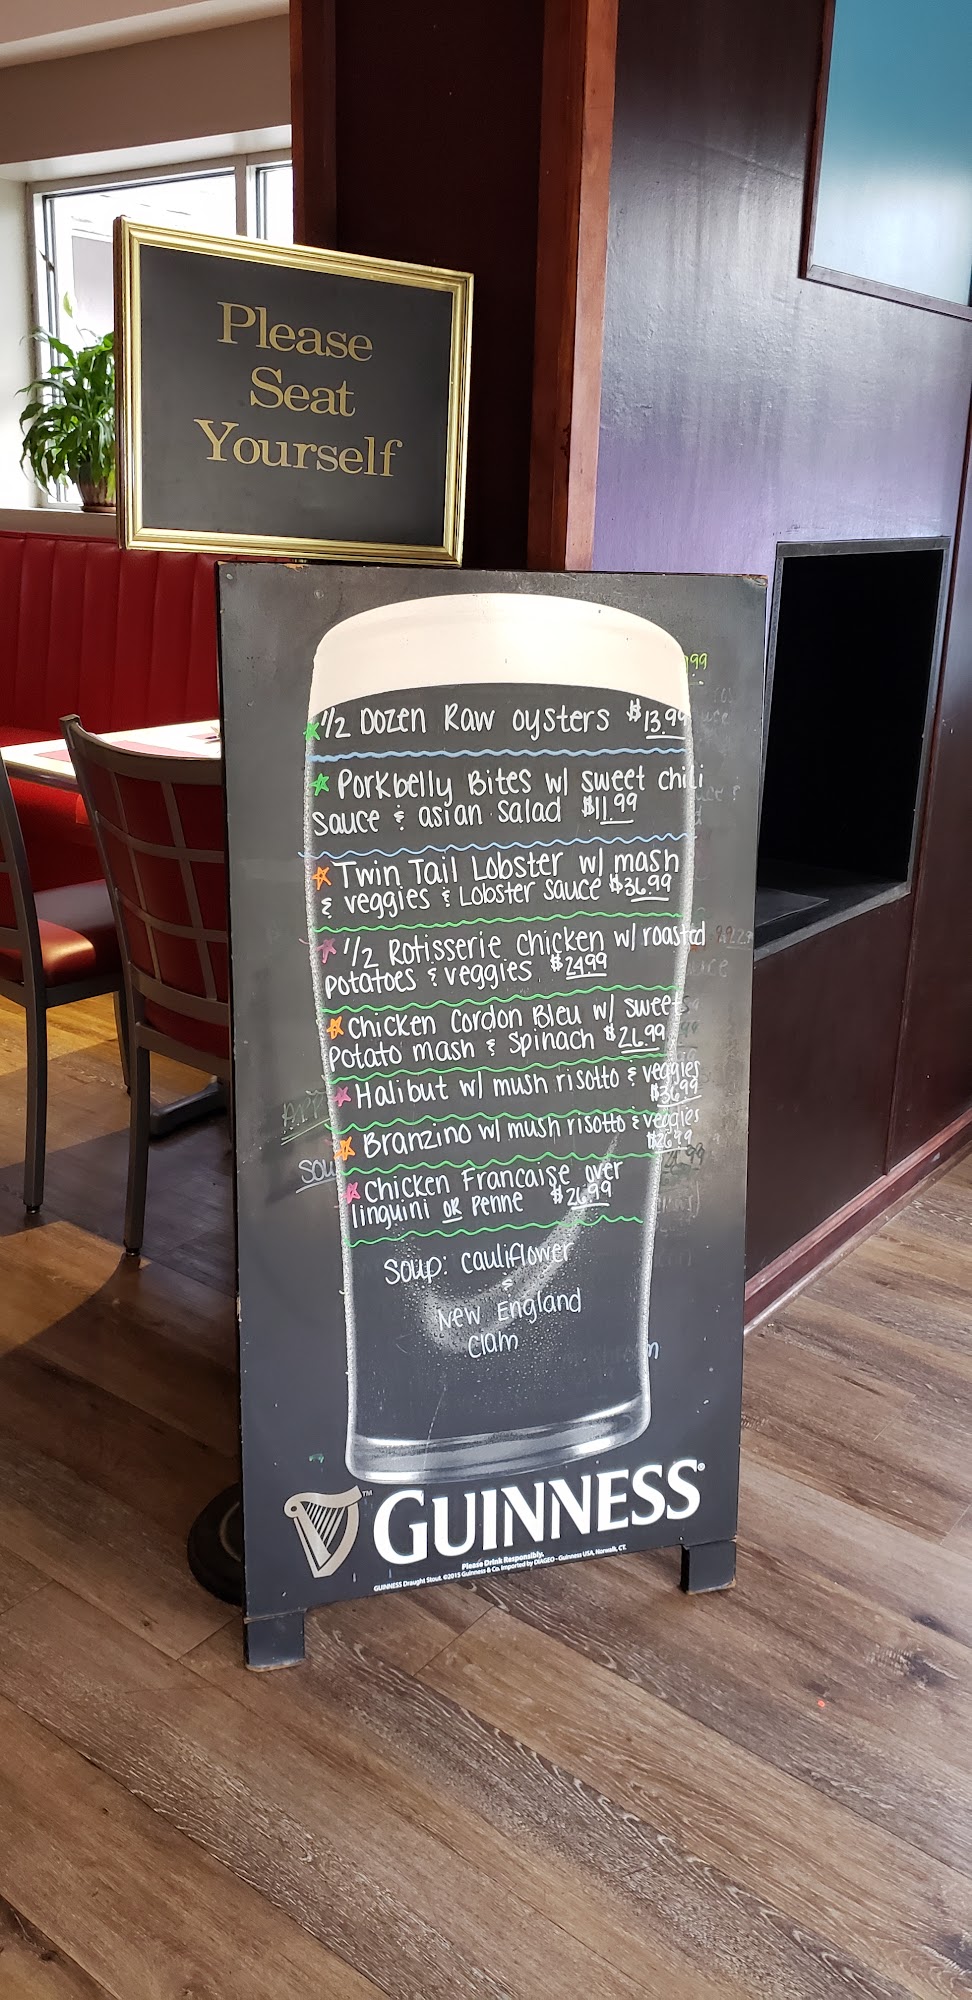 Please
Seat
Yourself
1/2 Dozen Raw oysters $13.99
Porkbelly Bites w/ sweet chili
sauce & asian salad $11.99
Twin Tail Lobster w/ mash
& veggies & Lobster sauce $36.99
1/2 Rotisserie chicken w/ roasted
potatoes & veggies $24.99
Chicken Cordon Bleu w/ sweet
Potato mash & Spinach $26.99
Halibut w/ mush risotto & veggies
$36.99
Branzino w/ mush risotto & veggies
$26.99
Chicken Francaise over
linguini OR Penne $26.99
Soup: cauliflower
&
New England
Clam
GUINNESS®
Please Drink Responsibly.
GUINNESS Draught Stout. ©2015 Guinness & Co. Imported by DIAGEO - Guinness USA, Norwalk, CT.